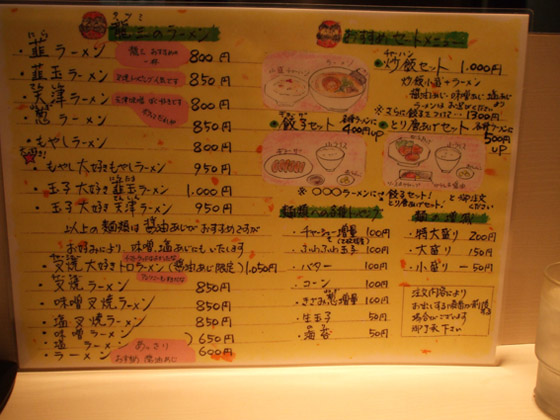 龍王のラーメン
・韮ラーメン 800円
・韮玉ラーメン 850円
・天津ラーメン 800円
・葱ラーメン 850円
・もやしラーメン 800円
・もやし大好きもやしラーメン 950円
・玉子大好き韮玉ラーメン 1,000円
・玉子大好き天津ラーメン 950円
以上の麺類は醤油あじがおすすめですが
お好みにより味噌、塩あじにもいたします
・叉焼大好きトロラーメン(醤油あじ限定) 1,050円
・叉焼ラーメン 850円
・味噌叉焼ラーメン 850円
・塩叉焼ラーメン 850円
・味噌ラーメン
・塩ラーメン 650円
・ラーメン 600円
あっさり
おすすめ 醤油あじ
おすすめセットメニュー
チャーハン
炒飯セット 1,000円
炒飯小盛+ラーメン
醤油あじ・味噌あじ・塩あじ
ラーメンはお選びください
※さらに餃子をつけて… 1300円
餃子セット 各種ラーメンに 400円UP
とり唐あげセット 各種ラーメンに 500円UP
※ ○○○ラーメンに 餃子セット!
とり唐あげセット! とご注文ください
麺類への各種トッピング
・チャーシュー増量 100円
・ふわふわ玉子 100円
・バター 100円
・コーン 100円
・きざみ葱増量 100円
・生玉子 50円
・海苔 50円
麺の増減
・特大盛り 200円
・大盛り 150円
・小盛り −50円
注文内容により
お出しする順番が前後する
場合がございます
御了承下さい